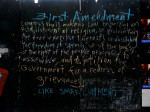 First Amendment
Congress shall make no law respecting an
establishment of religion, or prohibiting
the free exercise thereof; or abridging
the freedom of speech, or of the press;
or the right of the people
assemble, and to petition the
Government for a redress of
grievances.
LIKE